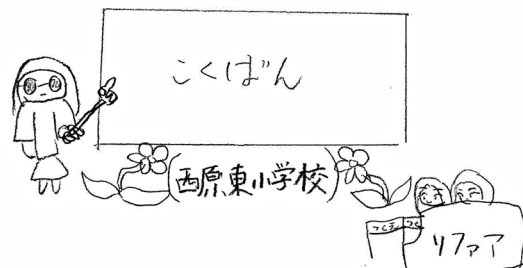 こくばん
(西原東小学校)
つくえ
つく
リファア